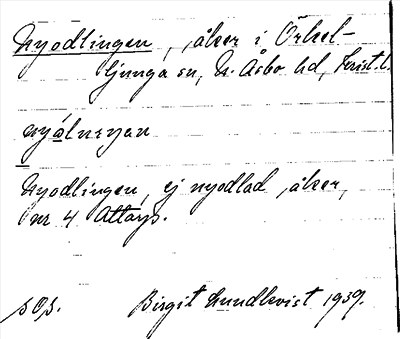 Nyodlingen, åker i Örkel-
ljunga sn, N. Åsbo hd, Krist. l.
Nyodlingen, ej nyodlad åker,
nr 4 Attarp.
s0s. Birgit Lundkvist 1939.